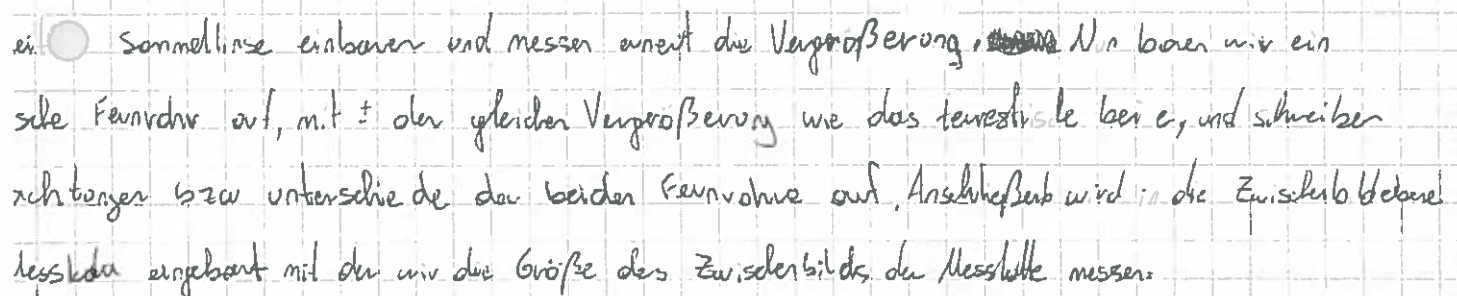 ei Sammellinse einbauen und messen erneut die Vergrößerung. Nun bauen wir ein
sche Fernrohr auf, mit ± der gleichen Vergrößerung wie das terrestrische bei e, und schreiben
achtungen bzw unterschiede der beiden Fernrohre auf. Anschließend wird in die Zwischenbildebene
Messskala eingebaut mit der wir die Größe des Zwischenbilds der Messlatte messen.